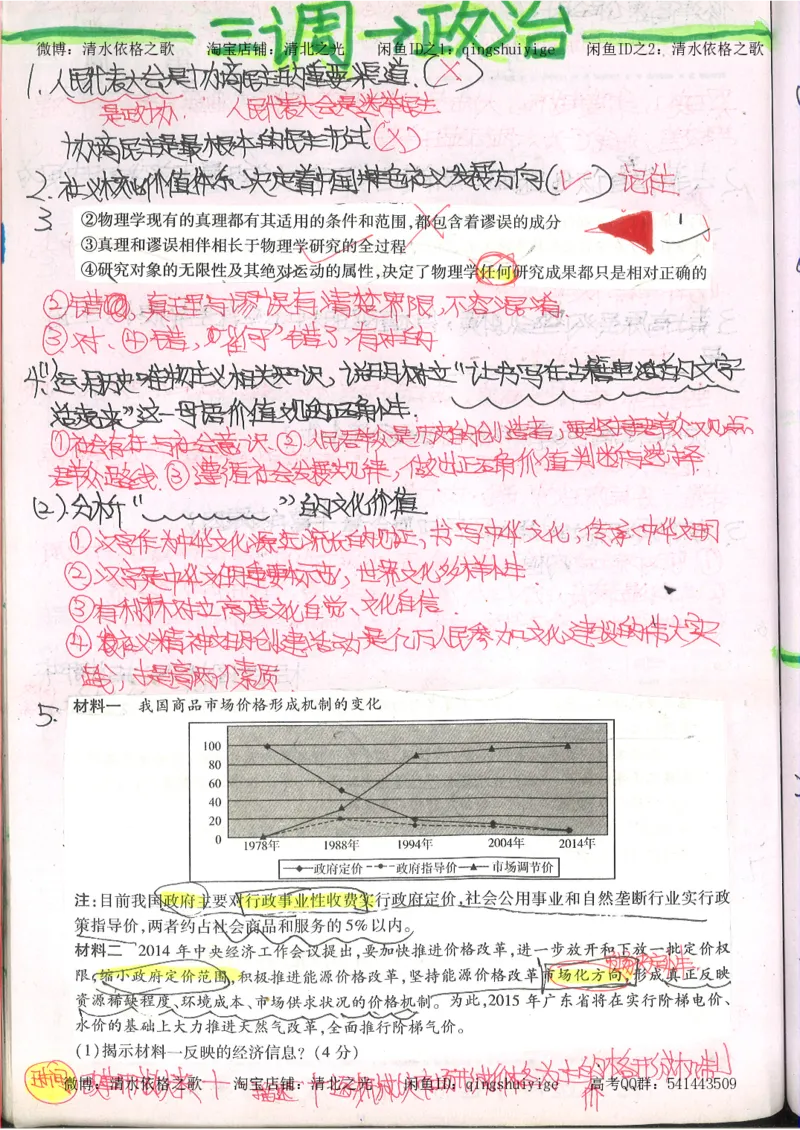 三调→政治
微博：清水依格之歌 淘宝店铺：清北之光 闲鱼ID之1：qingshuiyige 闲鱼ID之2：清水依格之歌
1. 人民代表大会是协商民主的重要渠道.（×）
是政协. 人民代表大会是选举民主
协商民主是最根本的民主形式（×）
2. 社义核心价值体系，决定着中国特色社义发展方向（✓）记住
3.
②物理学现有的真理都有其适用的条件和范围,都包含着谬误的成分
③真理和谬误相伴相长于物理学研究的全过程
④研究对象的无限性及其绝对运动的属性,决定了物理学任何研究成果都只是相对正确的
②错, 真理与谬误有清楚界限,不容混淆
③对、④错,"任何"错了,有绝对的
4. (1)运用历史唯物主义相关知识,说明树立"让书写在古籍里的文字
活起来"这一母语价值观的正确性.
①社会存在与社会意识.②人民群众是历史的创造者,要坚持群众观点
群众路线.③遵循社会发展规律,做出正确价值判断与选择
(2).分析" "的文化价值
①汉字作为中华文化源远流长的见证,书写中华文化,传承中华文明
②汉字是中华文明重要标志,世界文化多样性.
③有利于树立高度文化自觉、文化自信.
④ 社义精神文明创建活动是亿万人民参加文化建设的伟大实
践,也是高 个素质
5. 材料一 我国商品市场价格形成机制的变化
100
80
60
40
20
0
1978年 1988年 1994年 2004年 2014年
政府定价 政府指导价 市场调节价
注:目前我国政府主要对行政事业性收费实行政府定价,社会公用事业和自然垄断行业实行政
策指导价,两者约占社会商品和服务的5%以内。
材料二 2014年中央经济工作会议提出,要加快推进价格改革,进一步放开和下放一批定价权
限,缩小政府定价范围,积极推进能源价格改革,坚持能源价格改革市场化方向,形成真正反映
资源稀缺程度、环境成本、市场供求状况的价格机制。为此,2015年广东省将在实行阶梯电价、
水价的基础上大力推进天然气改革,全面推行阶梯气价。
(1)揭示材料一反映的经济信息?(4分)
微博：清水依格之歌 淘宝店铺：清北之光 闲鱼ID：qingshuiyige 高考QQ群：541443509